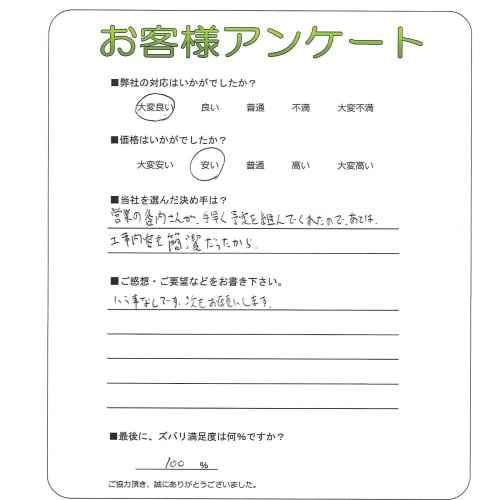 お客様アンケート
■弊社の対応はいかがでしたか？
大変良い 良い 普通 不満 大変不満
■価格はいかがでしたか？
大変安い 安い 普通 高い 大変高い
■当社を選んだ決め手は？
営業の 内さんが、手早く予定を組んでくれたので、あとは、
工事内容も簡潔だったから
■ご感想・ご要望などをお書き下さい。
いう事なしです。次もお願いします。
■最後に、ズバリ満足度は何％ですか？
100 ％
ご協力頂き、誠にありがとうございました。